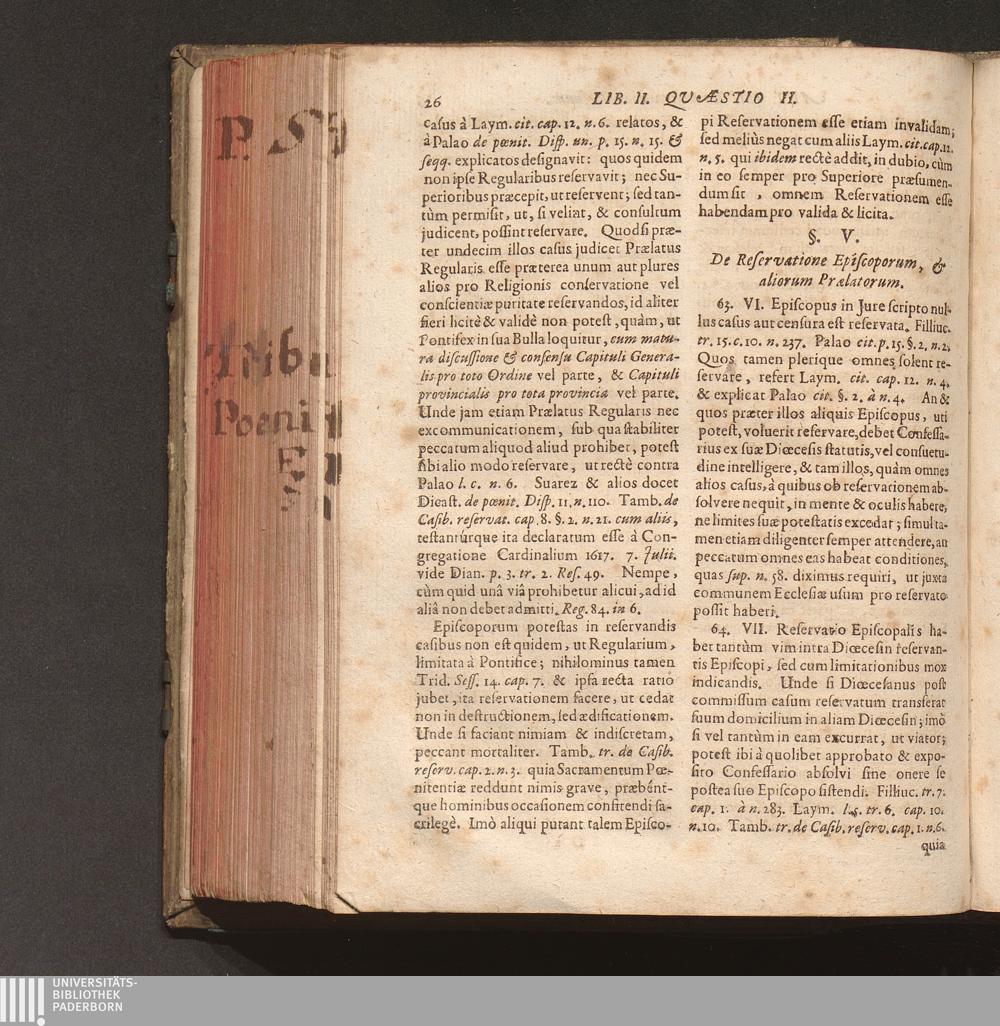 P. S
Tribu
Poeni
E
26
LIB. II. QVÆSTIO II.
casus à Laym. cit. cap. 12. n. 6. relatos, &
à Palao de pœnit. Disp. un. p. 15. n. 15. &
seqq. explicatos designavit: quos quidem
non ipse Regularibus reservavit; nec Su-
perioribus præcepit, ut reservent; sed tan-
tùm permisit, ut, si velint, & consultum
judicent, possint reservare. Quodsi præ-
ter undecim illos casus judicet Prælatus
Regularis esse præterea unum aut plures
alios pro Religionis conservatione vel
conscientiæ puritate reservandos, id aliter
fieri licitè & validè non potest, quàm, ut
Pontifex in sua Bulla loquitur, cum matu-
ra discussione & consensu Capituli Genera-
lis pro toto Ordine vel parte, & Capituli
provincialis pro tota provincia vel parte.
Unde jam etiam Prælatus Regularis nec
excommunicationem, sub qua stabiliter
peccatum aliquod aliud prohibet, potest
sibi alio modo reservare, ut rectè contra
Palao l. c. n. 6. Suarez & alios docet
Dicast. de pœnit. Disp. 11. n. 110. Tamb. de
Casib. reservat. cap. 8. §. 2. n. 21. cum aliis,
testantúrque ita declaratum esse à Con-
gregatione Cardinalium 1617. 7. Julii.
vide Dian. p. 3. tr. 2. Res. 49. Nempe,
cùm quid unâ viâ prohibetur alicui, ad id
aliâ non debet admitti. Reg. 84. in 6.
Episcoporum potestas in reservandis
casibus non est quidem, ut Regularium,
limitata à Pontifice; nihilominus tamen
Trid. Sess. 14. cap. 7. & ipsa recta ratio
jubet, ita reservationem facere, ut cedat
non in destructionem, sed ædificationem.
Unde si faciant nimiam & indiscretam,
peccant mortaliter. Tamb. tr. de Casib.
reserv. cap. 2. n. 3. quia Sacramentum Pœ-
nitentiæ reddunt nimis grave, præbént-
que hominibus occasionem confitendi sa-
crilegè. Imò aliqui putant talem Episco-
pi Reservationem esse etiam invalidam;
sed meliùs negat cum aliis Laym. cit. cap. 12.
n. 5. qui ibidem rectè addit, in dubio, cùm
in eo semper pro Superiore præsumen-
dum sit, omnem Reservationem esse
habendam pro valida & licita.
§. V.
De Reservatione Episcoporum, &
aliorum Prælatorum.
63. VI. Episcopus in Jure scripto nul-
lus casus aut censura est reservata. Filliuc.
tr. 15. c. 10. n. 237. Palao cit. p. 15. §. 2. n. 2.
Quos tamen plerique omnes solent re-
servare, refert Laym. cit. cap. 12. n. 4.
& explicat Palao cit. §. 2. à n. 4. An &
quos præter illos aliquis Episcopus, uti
potest, voluerit reservare, debet Confessa-
rius ex suæ Diœcesis statutis, vel consuetu-
dine intelligere, & tam illos, quàm omnes
alios casus, à quibus ob reservationem ab-
solvere nequit, in mente & oculis habere,
ne limites suæ potestatis excedat; simul ta-
men etiam diligenter semper attendere, an
peccatum omnes eas habeat conditiones,
quas sup. n. 58. diximus requiri, ut juxta
communem Ecclesiæ usum pro reservato
possit haberi.
64. VII. Reservatio Episcopalis ha-
bet tantùm vim intra Diœcesin reservan-
tis Episcopi, sed cum limitationibus mox
indicandis. Unde si Diœcesanus post
commissum casum reservatum transferat
suum domicilium in aliam Diœcesin; imò
si vel tantùm in eam excurrat, ut viator;
potest ibi à quolibet approbato & expo-
sito Confessario absolvi sine onere se
postea suo Episcopo sistendi. Filliuc. tr. 7.
cap. 1. à n. 283. Laym. l. 5. tr. 6. cap. 10.
n. 10. Tamb. tr. de Casib. reserv. cap. 1. n. 6.
quia
UNIVERSITÄTS-
BIBLIOTHEK
PADERBORN